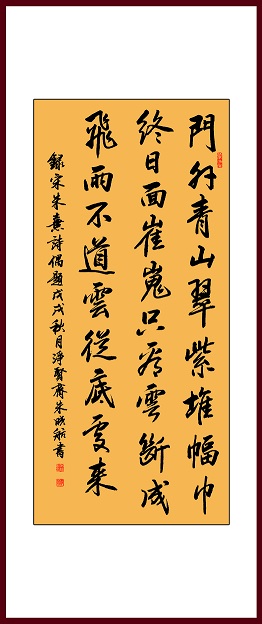 門外青山翠紫堆幅巾
終日面崔嵬只看雲斷成
飛雨不道雲從底處来
録宋朱熹詩偶題戊戌秋月淨賢齋朱晓航書